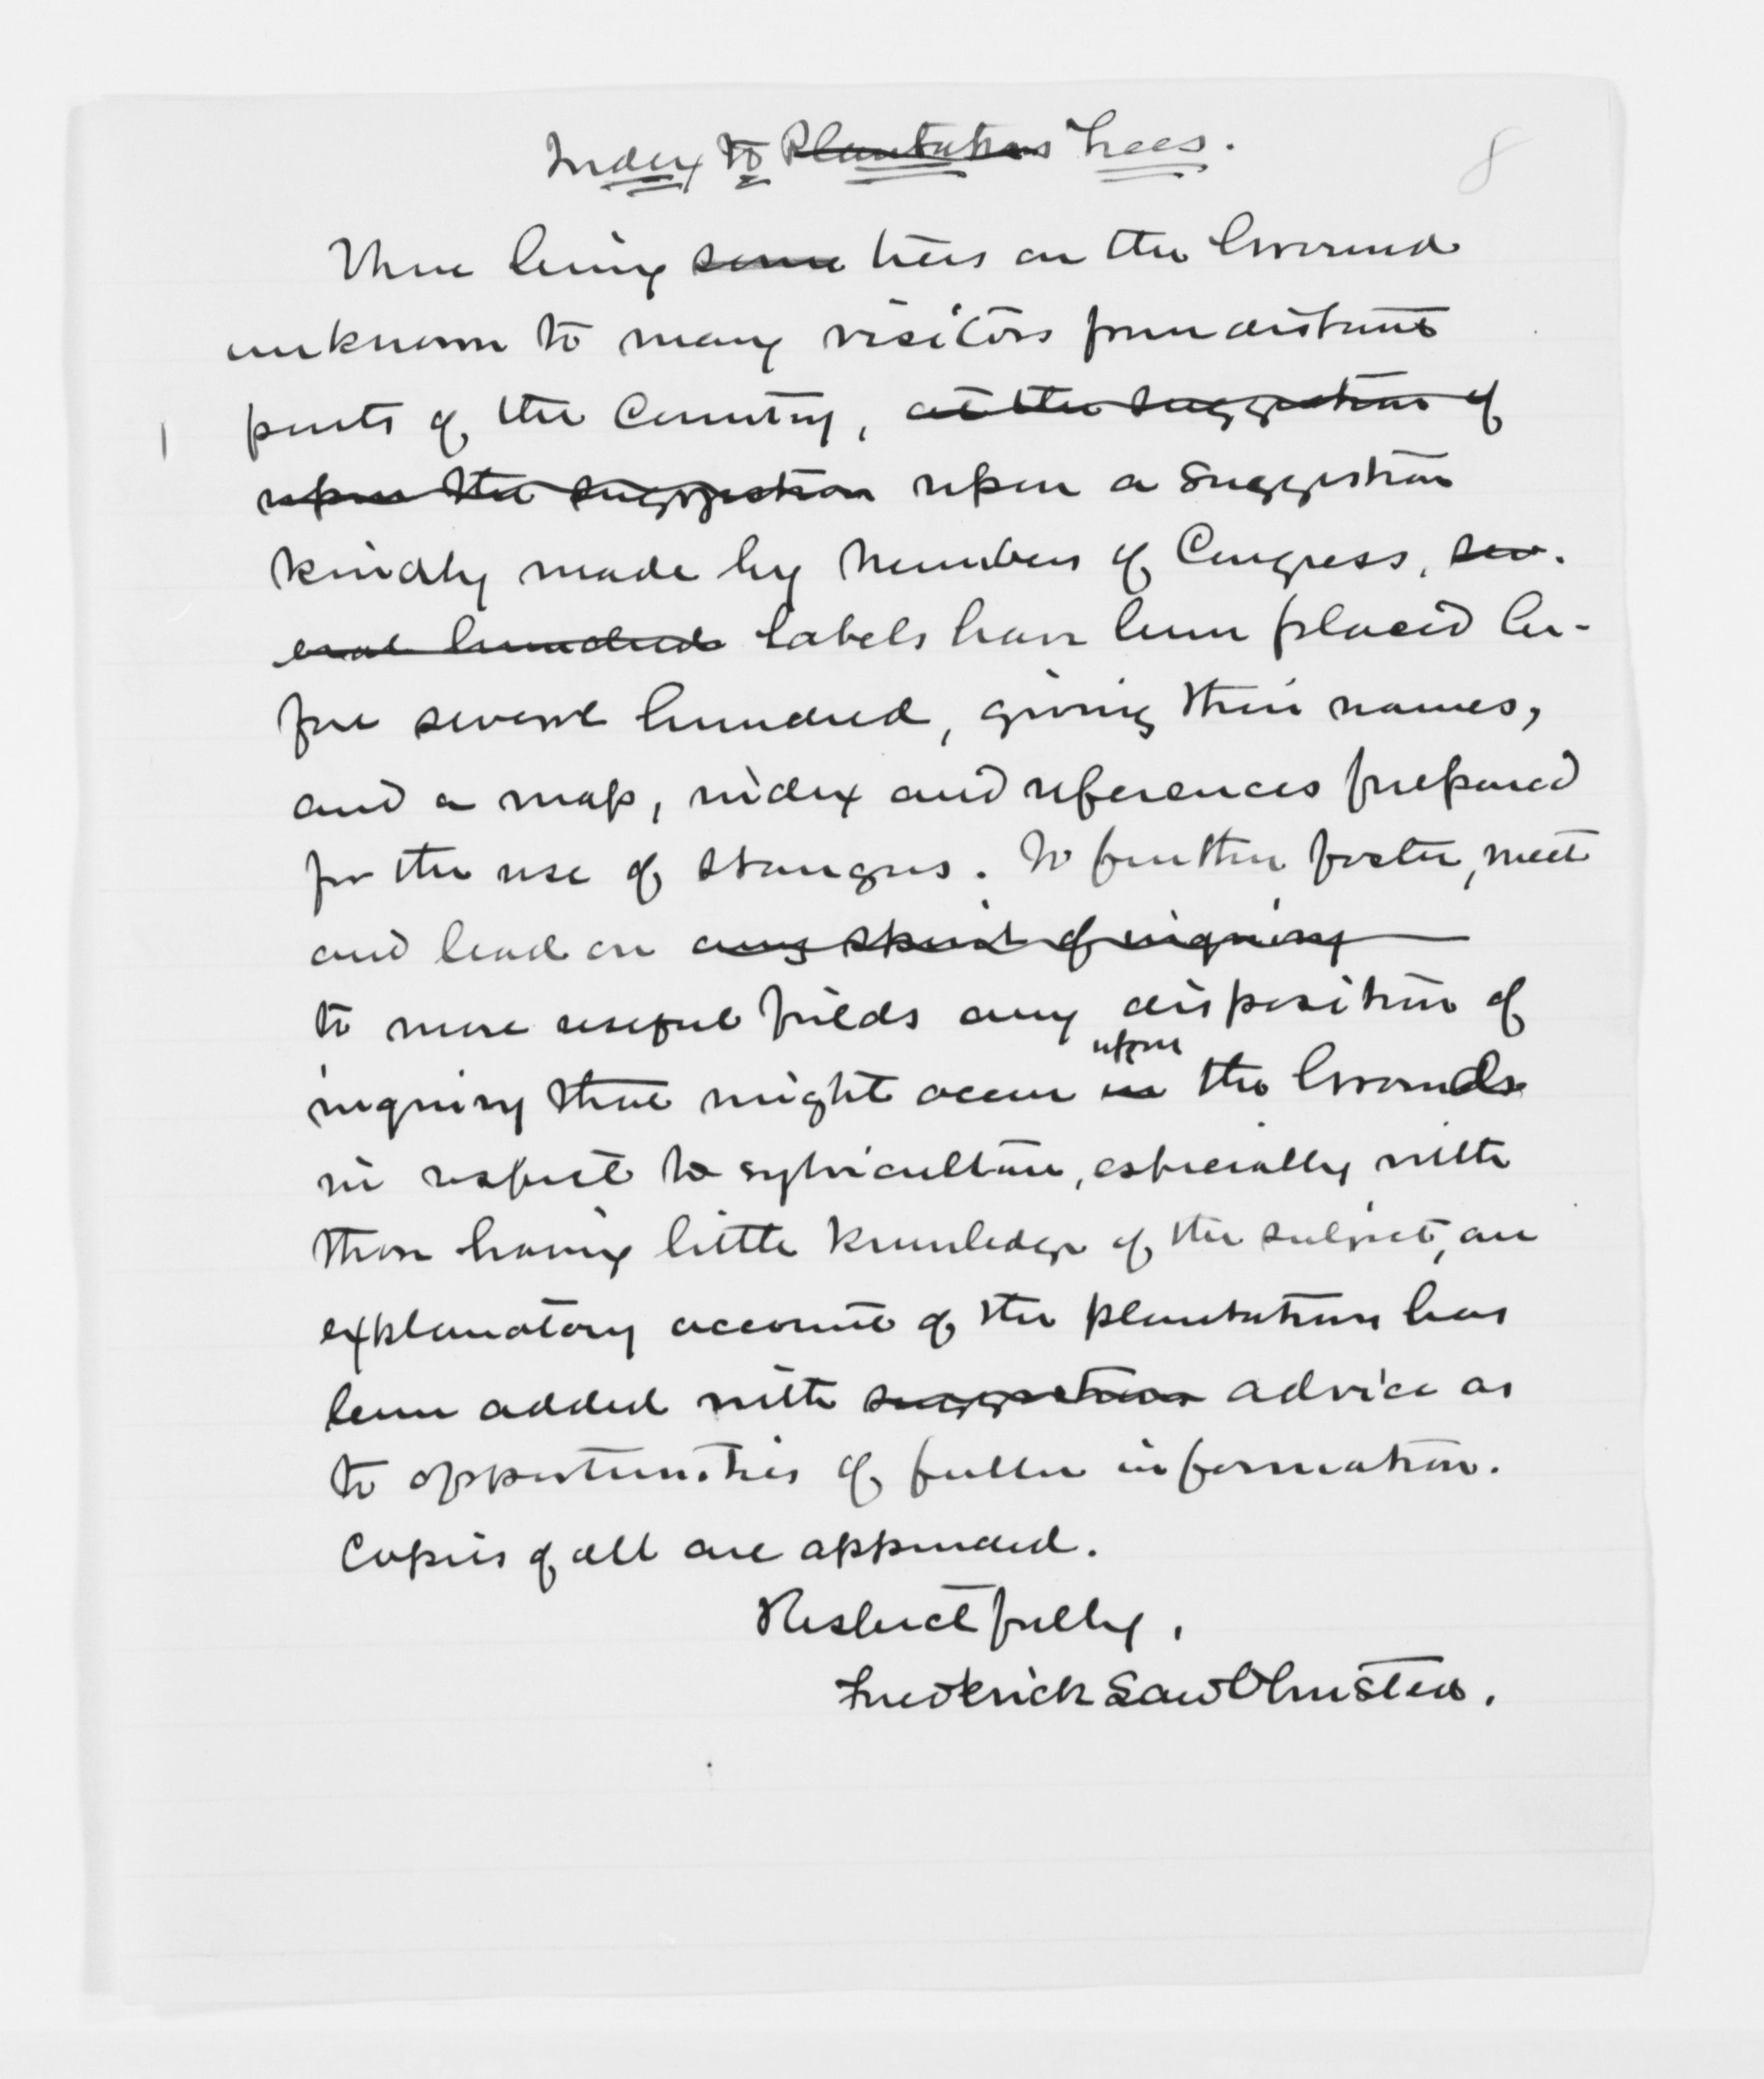 Index to Plantations Trees.
8
There being some trees on the Ground
unknown to many visitors from distant
parts of the Country, at the suggestion of
upon the suggestion upon a suggestion
kindly made by Members of Congress, sev-
eral hundred labels have been placed be-
fore several hundred, giving their names,
and a map, index and references prepared
for the use of strangers. To further foster, meet
and lead on any spirit of inquiry
to more useful fields any disposition of
upon
inquiry that might occur in the Grounds
in respect to sylviculture, especially with
those having little knowledge of the subject, an
explanatory account of the plantations has
been added with suggestions advice as
to opportunities of fuller information.
Copies of all are appended.
Respectfully,
Frederick Law Olmsted.